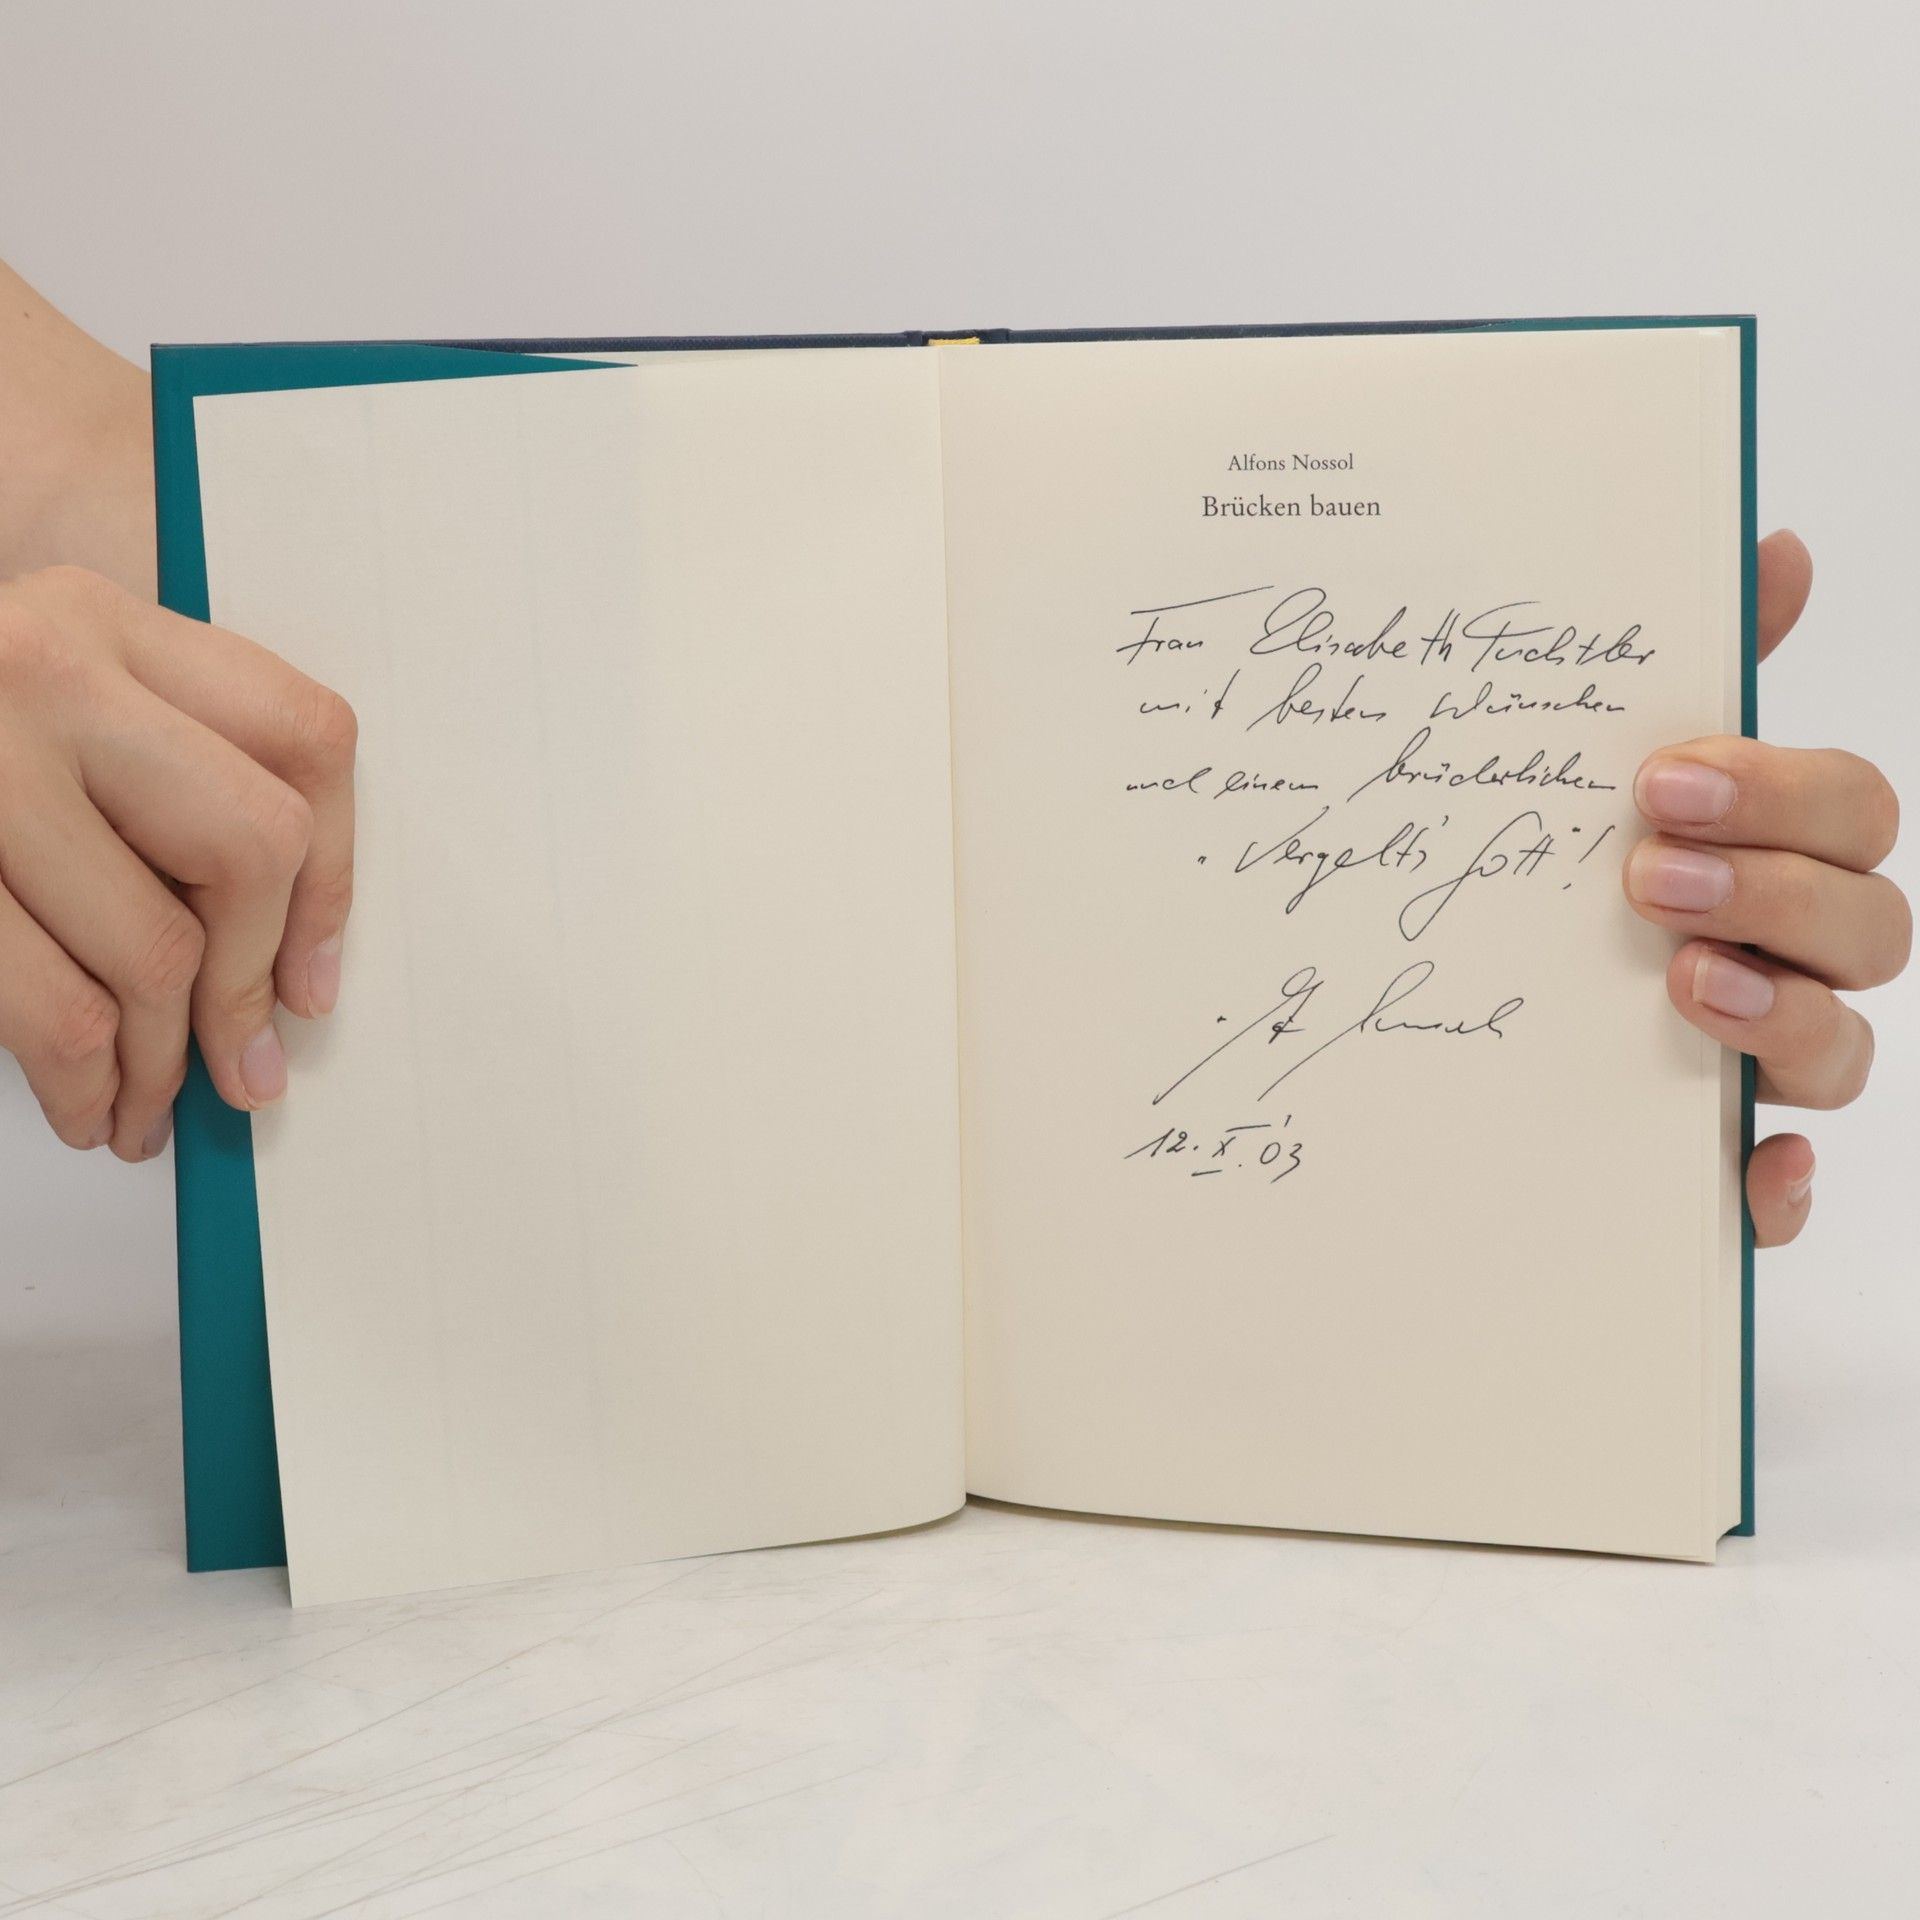 Alfons Nossol
Brücken bauen
Frau Elisabeth
mit besten Wünschen
und einem brüderlichen
"Vergelt's Gott"!
12. X. '03